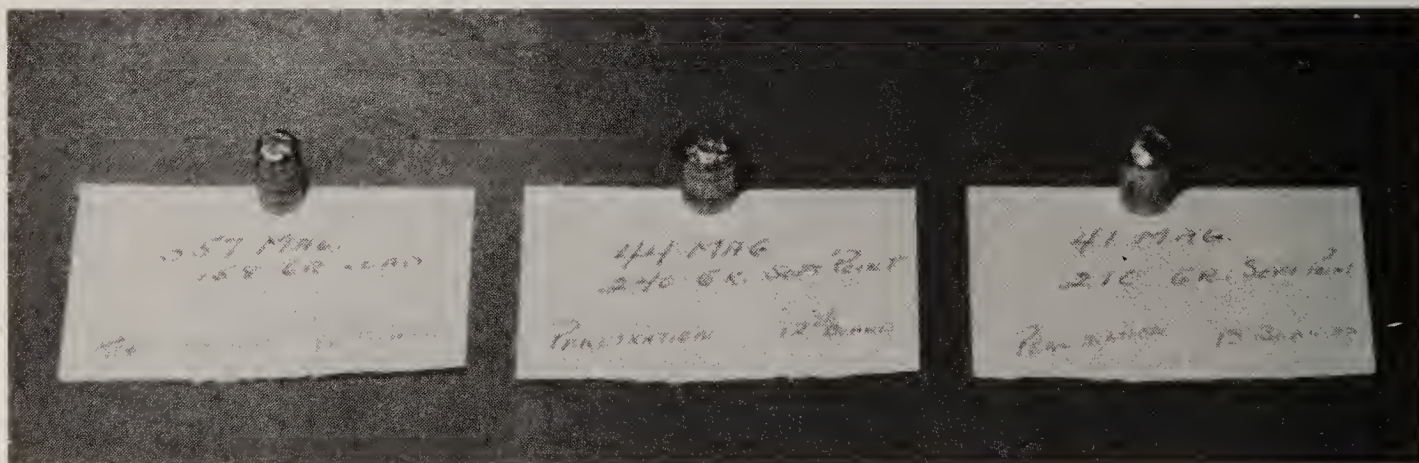 .357 MAG.
158 GR. LEAD
44 MAG
240 GR. SOFT POINT
PENETRATION 12 BOARDS
41 MAG.
210 GR. SOFT POINT
PENETRATION